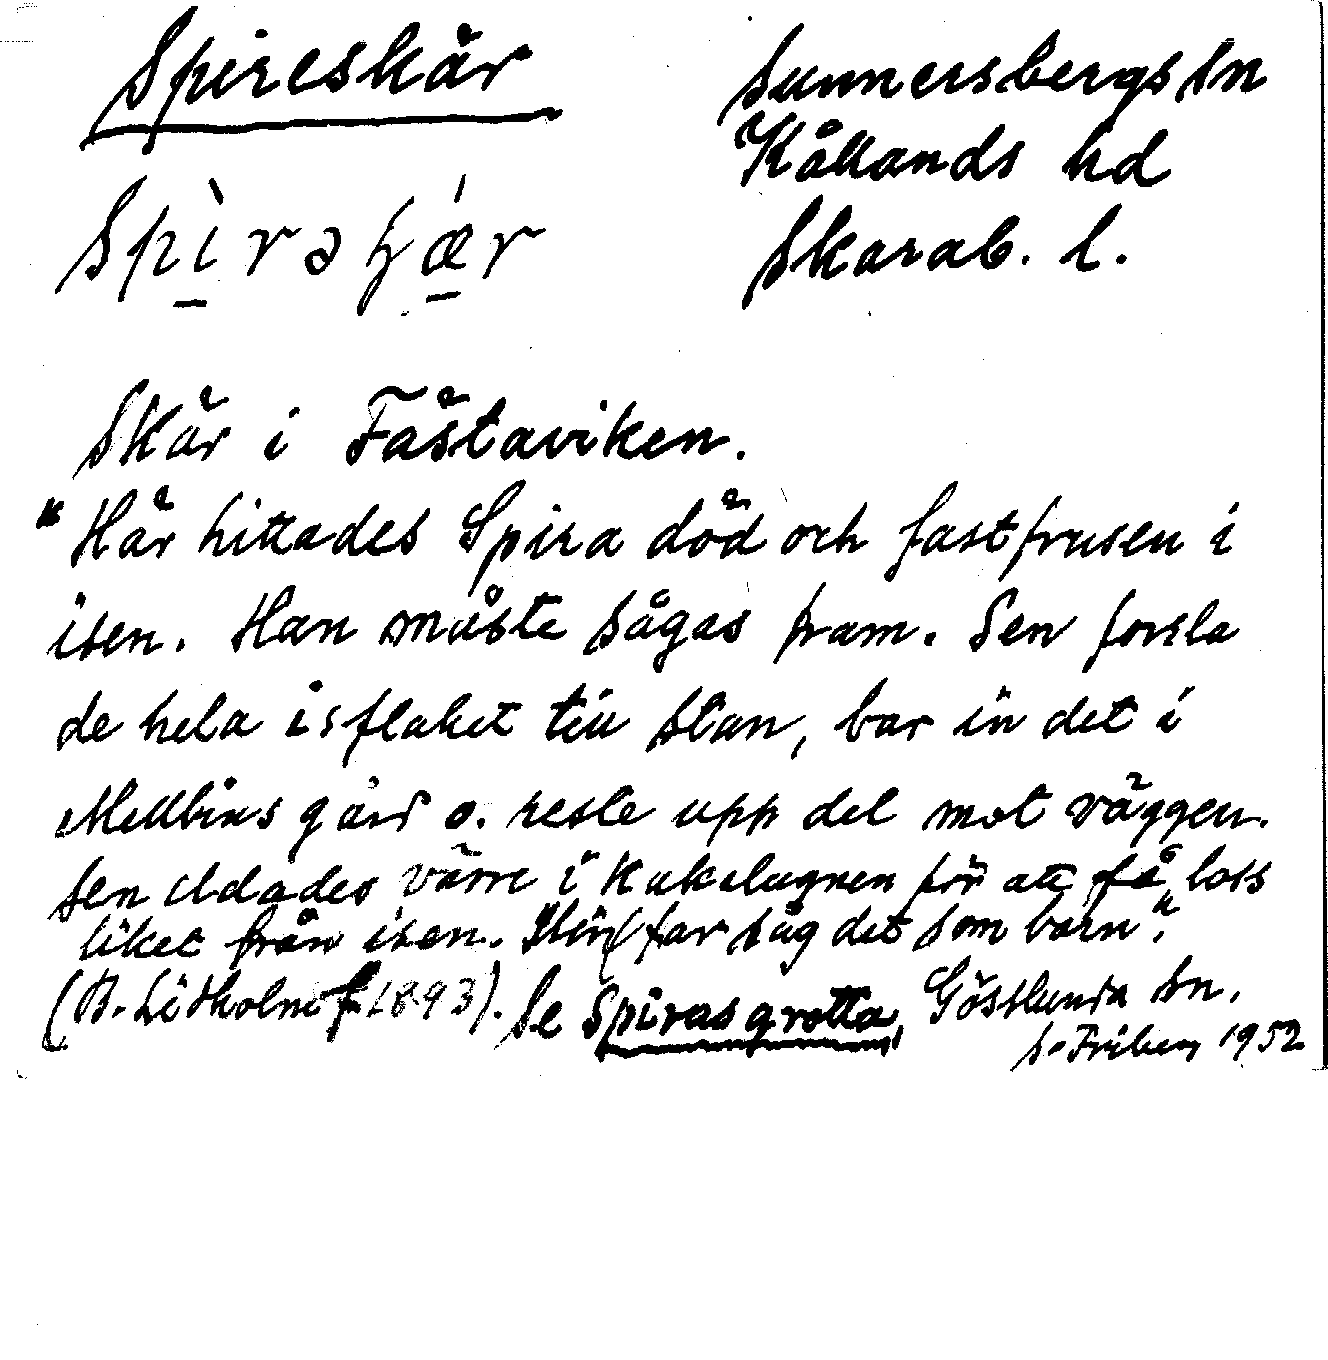 Spireskär
Sunnersbergs sn
Kållands hd
Skarab. l.
Skär i Fästaviken.
"Här hittades Spira död och fastfrusen i
isen. Han måste sågas fram. Sen forsla
de hela isflaket till stan, bar in det i
gård o. reste upp det mot väggen.
Sen eldades värre i kakelugnen för att få loss
liket från isen. far såg det som barn".
(B. Lidholm f. 1893). Se Spiras grotta, Gösslunda sn.
S. Friberg 1952